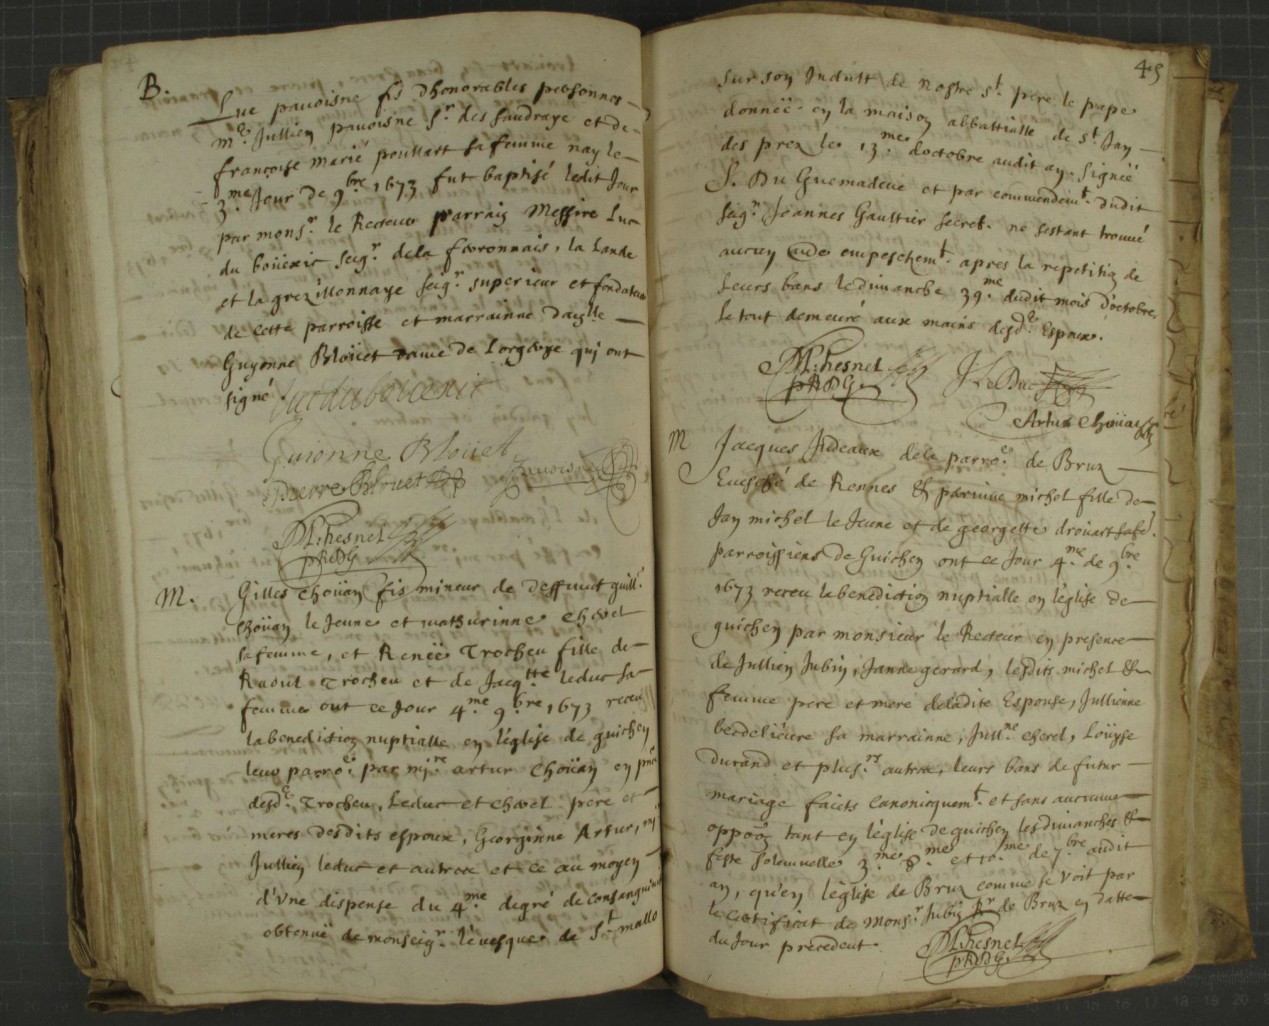 B.
Luc pavoisne fis d'honorables personnes
me Jullien pavoisne sr des saudraye et de
françoise marie poullart sa femme nay le
3me Jour de 9bre 1673 fut baptisé ledit Jour
par monsr le Recteur parrain Messire Luc
du boüexic seigr dela fœronnais, la Lande
et la grezillonnaye seigr superieur et fondateur
de cette parroisse et marrainne daylle
Guyonne Bloüet dame de Lorgeraye qui ont
signé Luc du bouexic
Guionne Blouet
Pierre Blouet pavoisne
M: chesnel
pR DG
M. Gilles choüan fis mineur de deffunct guill.
choüan le Jeune et mathurinne chevel
sa femme, et Reneë Trocheu fille de
Raoul Trocheu et de Jacqtte leduc sa
femme ont ce Jour 4me 9bre 1673 receu
la benediction nuptialle en l'église de guichen
leur parroe par mre artur choüan en pnce
desde Trocheu, Leduc et chevel père et
meres desdits espoux, Georginne Artur,
Jullien leduc et autres et ce au moyen
d'vne dispense du 4me degré de consanguinité
obtenuë de monseigr lévesque de St mallo
45
sur son Indult de Nostre St pere le pape
donneë en la maison abbattialle de St Jan
des prez le 13me doctobre audit an. Signeë
S. Du Guemadeuc et par commendemt dudit
seigr Joannes Gaultier secret. ne sestant trouué
aucun empeschemt apres la repetition de
leurs bans le dimanche 29me dudit mois d'octobre,
le tout demeuré aux mains desde Espoux.
M: chesnel J. Le Duc
pR DG
Artur choüan
M Jacques Judeaux dela parroe de Bruz
Euesché de Rennes & perinne michel fille de
Jan michel le Jeune et de georgette drouart sa fe
parroissiens de Guichen ont ce Jour 4me de 9bre
1673 receu la benediction nuptialle en léglise de
guichen par monsieur le Recteur en presence
de Jullien Jubin, Janne gerard, lesdits michel &
femme pere et mere deladite Espouse, Jullienne
bedelieure sa marrainne, Jullne cherel, Loüyse
durand et plusrs autres, leurs bans de futur
mariage faicts canonicquemt et sans aucune
oppoön tant en léglise de guichen les dimanches &
feste solemnelle 3me 8me et 10me de 7bre audit
an, qu'en léglise de Bruz comme se voit par
le certificat de Monsr Jubin pr de Bruz en datte
du Jour precedent. M: chesnel
pR DG